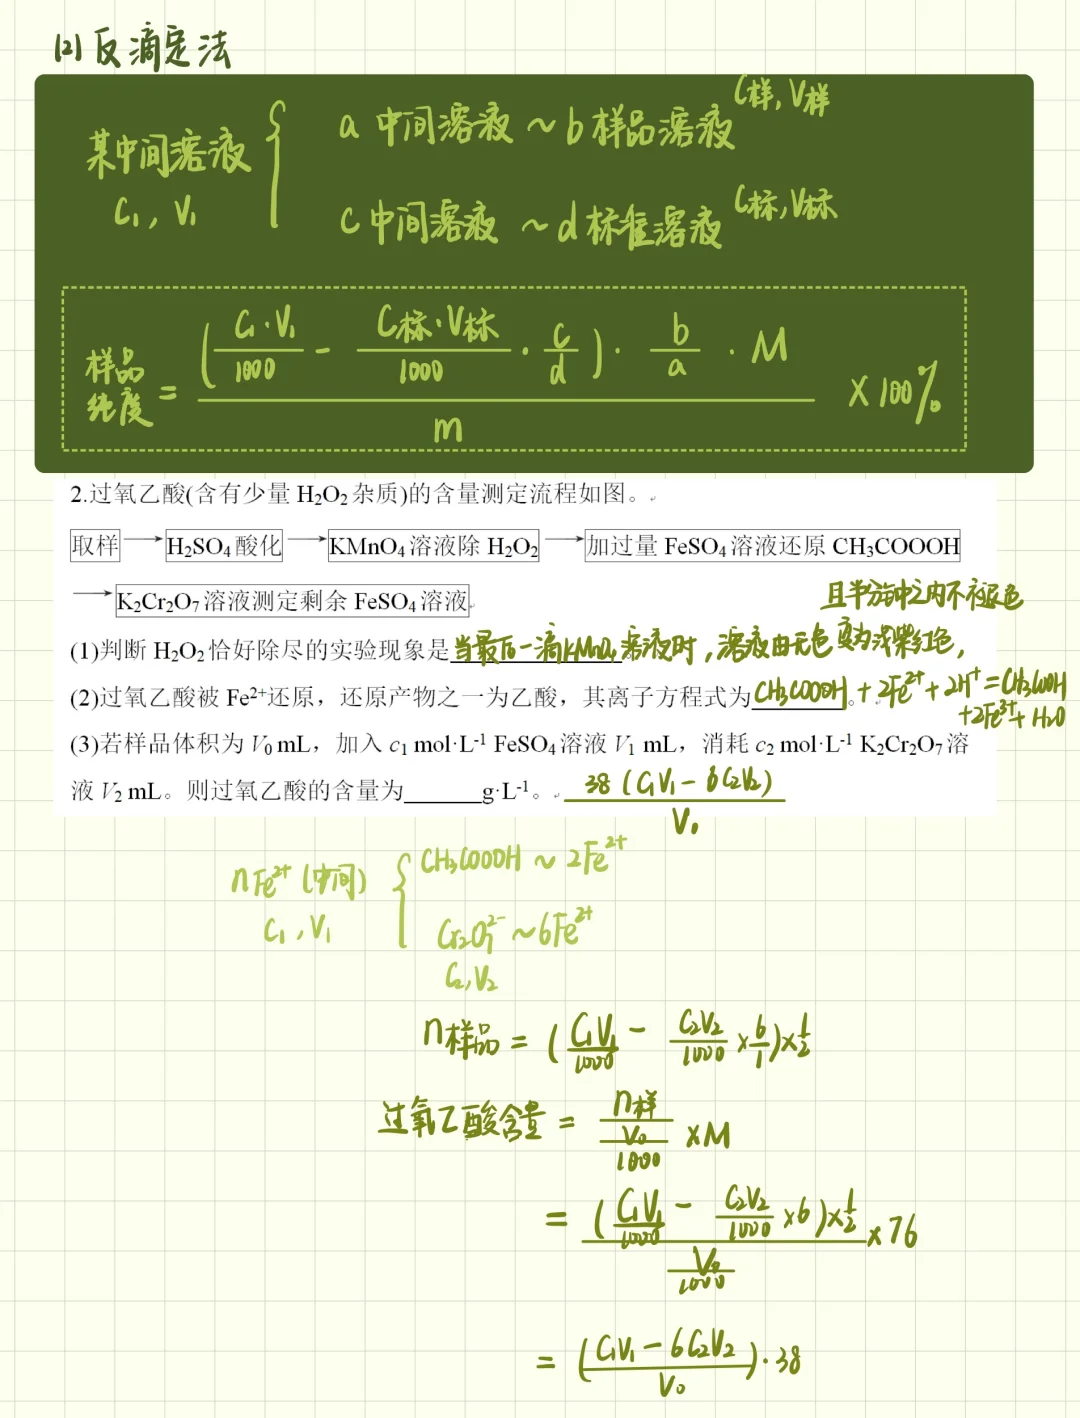 (2)反滴定法
某中间溶液 C₁, V₁
a 中间溶液 ~ b 样品溶液 C样, V样
c 中间溶液 ~ d 标准溶液 C标, V标
样品纯度 = ((C₁·V₁/1000 - C标·V标/1000 · c/d) · b/a · M) / m × 100%
2.过氧乙酸(含有少量 H₂O₂ 杂质)的含量测定流程如图。
取样 → H₂SO₄ 酸化 → KMnO₄ 溶液除 H₂O₂ → 加过量 FeSO₄ 溶液还原 CH₃COOOH
→ K₂Cr₂O₇ 溶液测定剩余 FeSO₄ 溶液
(1)判断 H₂O₂ 恰好除尽的实验现象是 当最后一滴KMnO₄溶液时，溶液由无色变为浅紫红色，
且半分钟之内不褪色
(2)过氧乙酸被 Fe²⁺还原，还原产物之一为乙酸，其离子方程式为 CH₃COOOH + 2Fe²⁺ + 2H⁺ = CH₃COOH
+ 2Fe³⁺ + H₂O 。
(3)若样品体积为 V₀ mL，加入 c₁ mol·L⁻¹ FeSO₄ 溶液 V₁ mL，消耗 c₂ mol·L⁻¹ K₂Cr₂O₇ 溶
液 V₂ mL。则过氧乙酸的含量为______g·L⁻¹。 38(C₁V₁ - 6C₂V₂) / V₀
nFe²⁺(中间) C₁, V₁
CH₃COOOH ~ 2Fe²⁺
Cr₂O₇²⁻ ~ 6Fe²⁺
C₂, V₂
n样品 = (C₁V₁/1000 - C₂V₂/1000 × 6/1) × 1/2
过氧乙酸含量 = n样 / (V₀/1000) × M
= ((C₁V₁/1000 - C₂V₂/1000 × 6) × 1/2) / (V₀/1000) × 76
= ((C₁V₁ - 6C₂V₂) / V₀) · 38